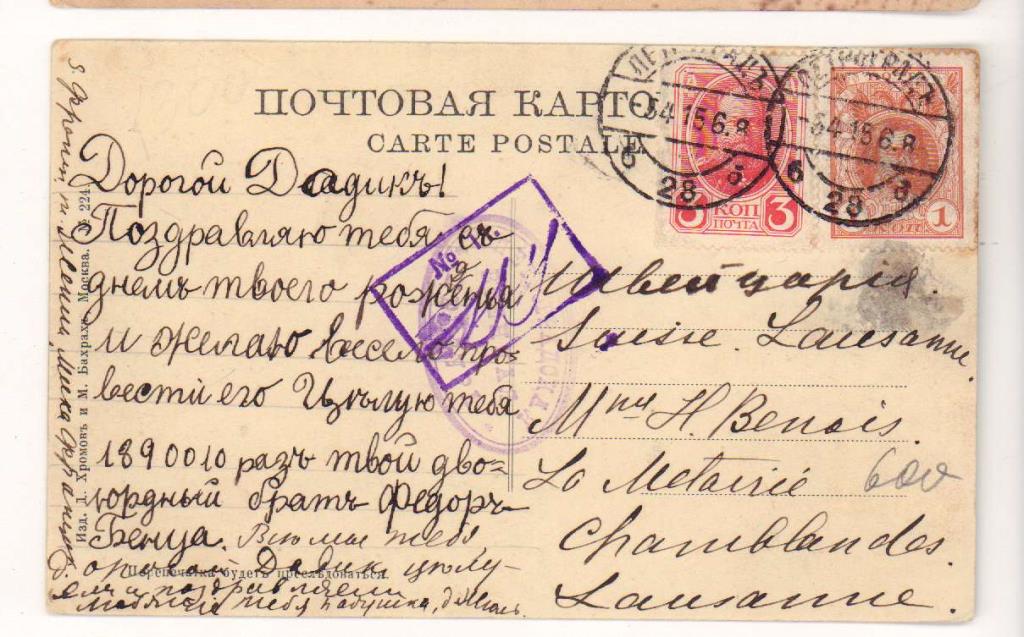 ПОЧТОВАЯ КАРТО
CARTE POSTALE
ПЕТРОГРАДЪ
-5 4 15 6. 8
6 28 з
ПЕТРОГРАДЪ
-5 4 15 6. 8
6 28 з
3 КОП 3
ПОЧТА
1
КОП
Дорогой Дадикъ!
Поздравляю тебя съ
днемъ твоего рожденья
и желаю весело про-
вести его Цѣлую тебя
1890010 разъ твой дво-
юрдный братъ Федоръ
Бенуа. Всѣ мы тебя
Дадик цѣлу-
ем и поздравляем
тебя бабушка,
№
Швейцарія.
Suisse. Lausanne.
Mme H. Benois.
La Metairie
600
Chamblandes
Lausanne.
Изд. Д. Хромовъ и М. Бахрахъ Москва. № 224
Перепечатка будетъ преслѣдоваться.